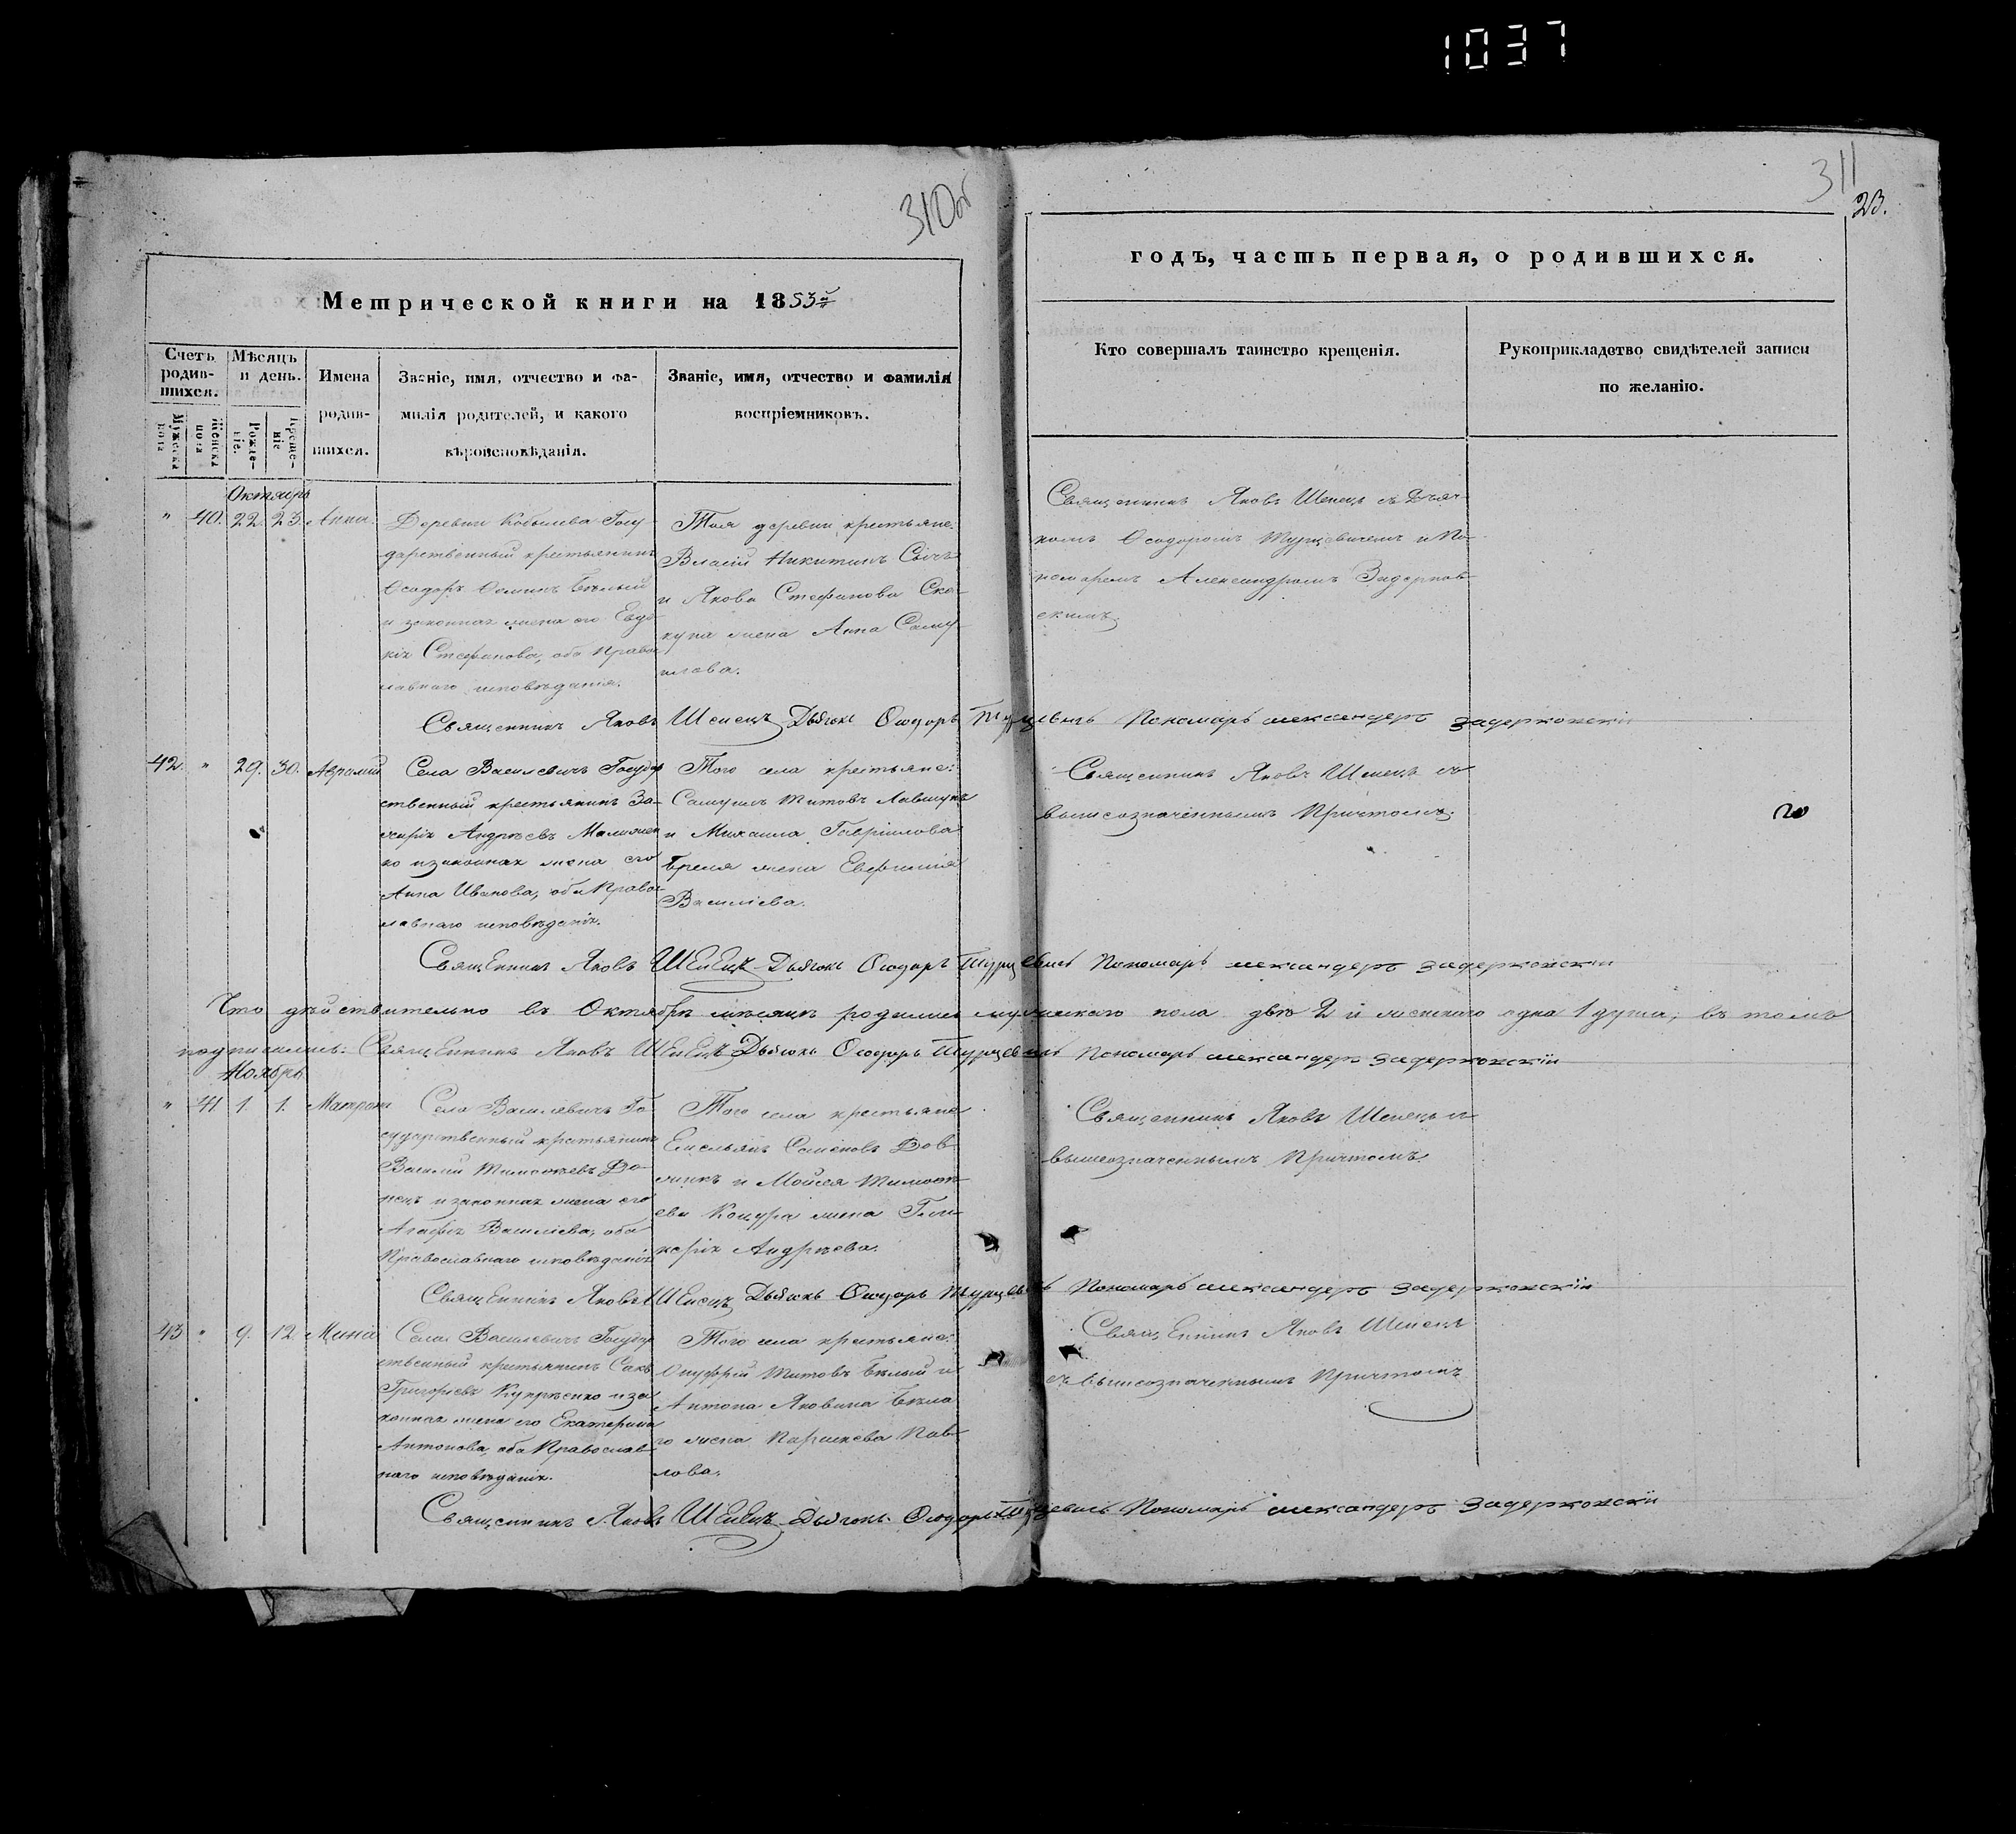 1037
310об
311
23.
Метрической книги на 1853й
годъ, часть первая, о родившихся.
Счетъ родившихся.
Мужеска пола
Женска пола
Мѣсяцъ и день.
Рожденіе.
Крещеніе
Имена родившихся.
Званіе, имя, отчество и фамилія родителей, и какого вѣроисповѣданія.
Званіе, имя, отчество и фамилія воспріемниковъ.
Кто совершалъ таинство крещенія.
Рукоприкладство свидѣтелей записи по желанію.
Октябрь
" 40. 22. 23. Анна.
Деревни Кобылева Госу-
дарственный крестьянинъ
Ѳеодоръ Ѳоминъ Бѣлый
и законная жена его Евдо-
кія Стефанова, оба Право-
славнаго исповѣданія.
Тоя деревни крестьяне:
Власій Никитинъ
и Якова Стефанова Ско-
купа жена Анна Саму-
илова.
Священникъ Яковъ Шенецъ съ Дьяч-
комъ Ѳеодоромъ Турцевичемъ и По-
номаремъ Александромъ Задерков-
скимъ.
Священникъ Яковъ Шенецъ Дьячокъ Ѳеодоръ Турцевичъ Пономарь александеръ задерковскій
42. " 29. 30. Аврамій
Села Василевичъ Государ
ственный крестьянинъ За-
харія Андреевъ
и законная жена его
Анна Иванова, оба Право-
славнаго исповѣданія.
Того села крестьяне:
Самуилъ Титовъ
и Михаила Гавріилова
жена Евфимія
Василіева.
Священникъ Яковъ Шенецъ съ
вышеозначеннымъ Причтомъ.
Священникъ Яковъ Шенецъ Дьячокъ Ѳеодоръ Турцевичъ Пономарь александеръ задерковскій
Что дѣйствительно въ Октябрѣ мѣсяцѣ родились мужескаго пола двѣ 2 и женскаго одна 1 душа, въ томъ
подписались: Священникъ Яковъ Шенецъ Дьячокъ Ѳеодоръ Турцевичъ Пономарь александеръ задерковскій
Ноябрь
" 41 1. 1. Матрона
Села Василевичъ Го-
сударственный крестьянинъ
Василій Тимоѳеевъ До-
нецъ и законная жена его
Агафія Василіева, оба
Православнаго исповѣданія
Того села крестьяне
Емельянъ Семеновъ
и Мойсея Тимоѳе-
ева Коцура жена Гли-
керія Андреева.
Священникъ Яковъ Шенецъ съ
вышеозначеннымъ Причтомъ.
Священникъ Яковъ Шенецъ Дьячокъ Ѳеодоръ Турцевичъ Пономарь александеръ задерковскій
43 " 9. 12. Мина
Села Василевичъ Государ
ственный крестьянинъ
Григорьевъ и за-
конная жена его Екатерина
Антонова, оба Православ-
наго исповѣданія.
Того села крестьяне:
Онуфрій Титовъ Бѣлый и
Антона Яковина Бѣла-
го жена Параскева Пав-
лова.
Священникъ Яковъ Шенецъ
съ вышеозначеннымъ Причтомъ
Священникъ Яковъ Шенецъ Дьячокъ Ѳеодоръ Турцевичъ Пономарь александеръ задерковскій